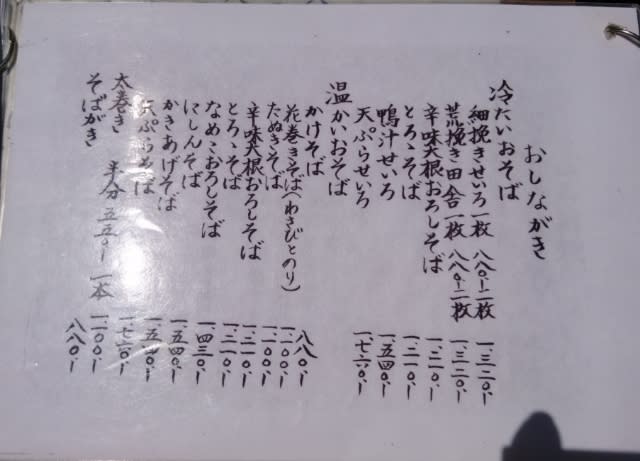 おしながき
冷たいおそば
細挽きせいろ一枚 八八〇.ー二枚 一.三二〇.ー
荒挽き田舎一枚 八八〇.ー二枚 一.三二〇.ー
辛味大根おろしそば 一.二一〇.ー
とろゝそば 一.二一〇.ー
鴨汁せいろ 一.五四〇.ー
天ぷらせいろ 一.七六〇.ー
温かいおそば
かけそば 八八〇.ー
花巻きそば(わさびとのり) 一.一〇〇.ー
たぬきそば 一.一〇〇.ー
辛味大根おろしそば 一.二一〇.ー
とろゝそば 一.二一〇.ー
なめこおろしそば 一.四三〇.ー
にしんそば 一.五四〇.ー
かきあげそば 一.五四〇.ー
天ぷらそば 一.七六〇.ー
太巻き 半分 五五〇.ー 一本 一.一〇〇.ー
そばがき 八八〇.ー